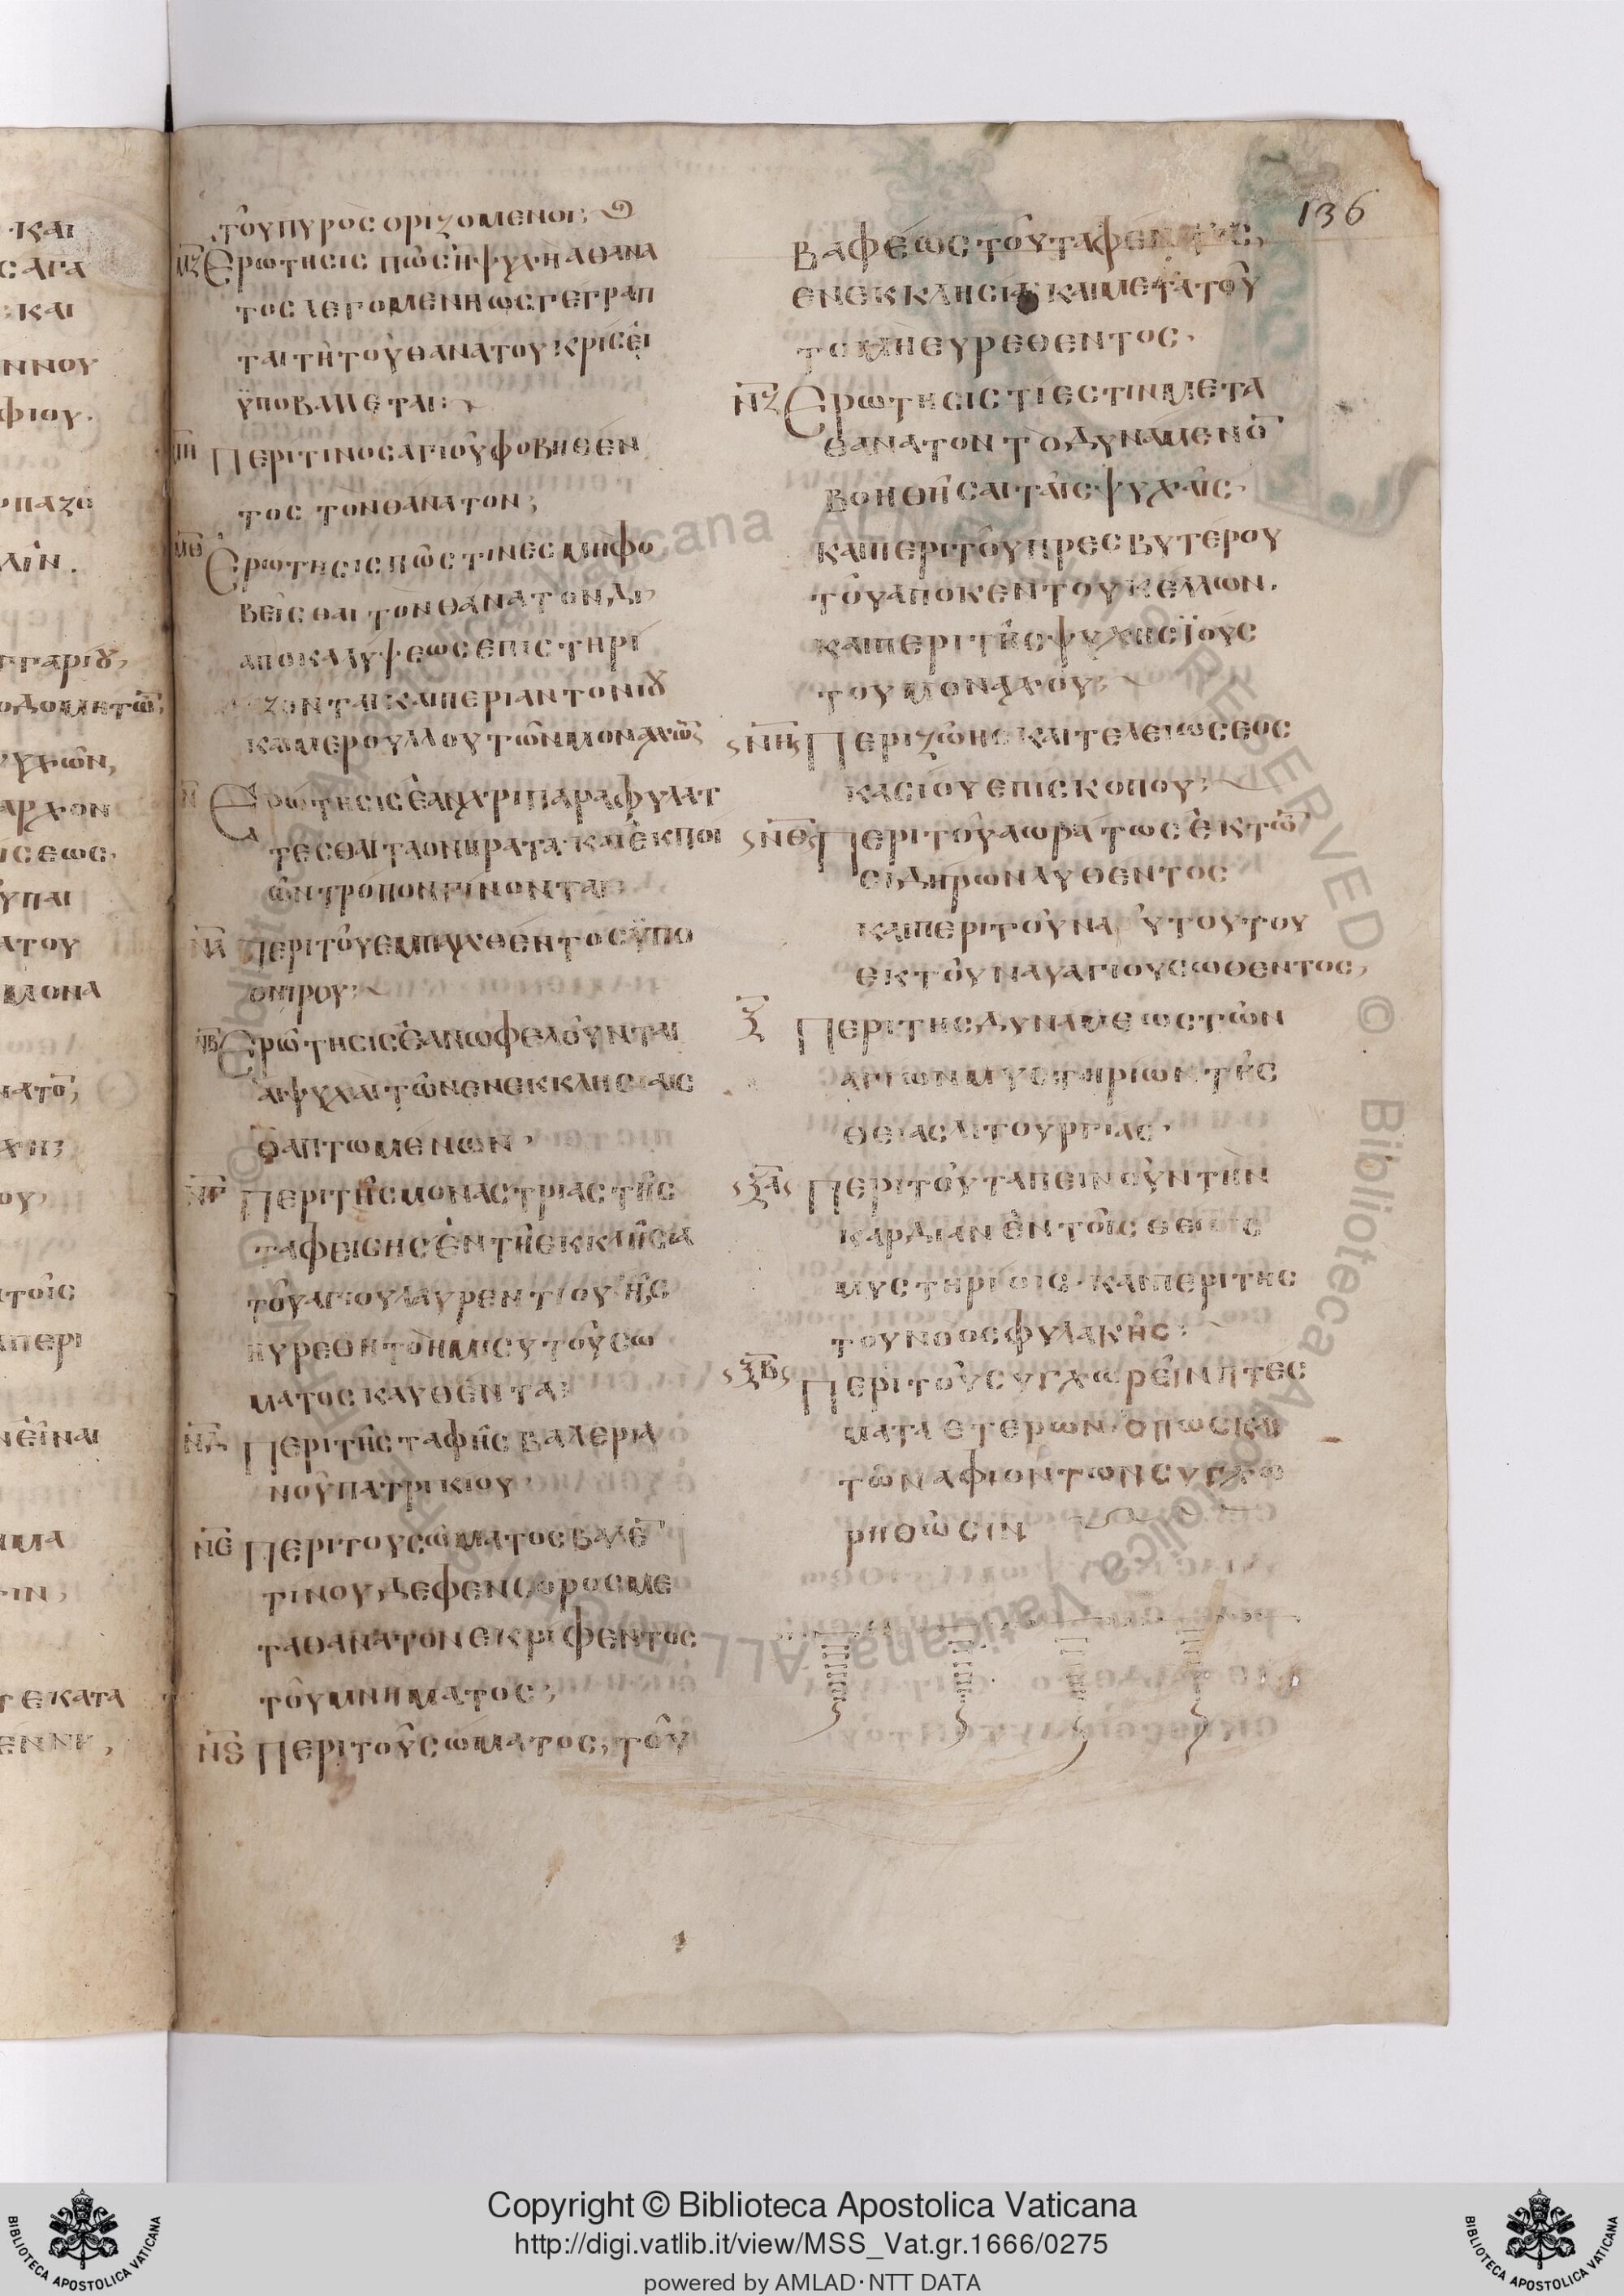 136
τοῦ πυρὸς οριζομενοι;
μζ Ερωτησις πῶς ἡ ψυχὴ ἀθανα
τος λεγομενη ως γεγραπ
ται τῆ τοῦ θανατου κρίσει
ϋποβαλλεται:
μη Περι τινος αγιου φοβηθεν
τος τὸν θανατον;
μθ Ερωτησις πῶς τινες μη φο
βεῖσθαι τὸν θανατον δι
αποκαλυψεως επιστηρι
ζονται και περι αντονιου
και μερουλλου τῶν μοναχῶν
ν Ερωτησις ἐὰν χρὶ παραφυλατ
τεσθαι τὰ ονηρατα και ἐκ ποι
ῶν τρόπον γίνονται:
να Περι τοῦ εμπαιχθέντος ϋπο
ονιρου:
νβ Ερώτησις ἐὰν ωφελοῦνται
αι ψυχαι τῶν εν εκκλησιαις
θαπτωμενων,
νγ Περι τῆς μοναστριας τῆς
ταφεισης ἐν τῆ εκκλησία
τοῦ αγιου λαυρεντίου ἧς
ηυρεθη τὸ ημισυ τοῦ σω
ματος καυθέντα:
νδ Περι τῆς ταφῆς βαλερια
νοῦ πατρικίου
νε Περι του σώματος βαλε̅
τινου δεφενσορος με
τα θανατον εκριφεντος
τοῦ μνηματος;
νς Περι τοῦ σώματος, τοῦ
βαφέως τοῦ ταφεντος,
εν εκκλησία και μετα τοῦ
το μη ευρεθεντος,
νζ Ερωτησις τί εστιν μετα
θανατον τὸ δυναμενο̅
βοηθῆσαι ταῖς ψυχαῖς,
και περι τοῦ πρεσβυτερου
τοῦ απο κεντουκελλων.
και περι τῆς ψυχης ϊους
του μοναχου:
νη Περι ζωῆς και τελειωσεος
κασίου επισκοπου:
νθ Περι τοῦ αωράτως ἐκ τῶ̅
σιδηρων λυθεντος
και περι τοῦ ναύτου του
εκ τοῦ ναυαγιου σωθεντος,
ξ Περι της δυναμεως τῶν
αγιων μυστηρίων τῆς
θειας λιτουργιας,
ξα Περι τοῦ ταπεινοῦν τὴν
καρδιαν ἐν τοῖς θειοις
μυστηρίοις, και περι της
του νοος φυλακῆς:
ξβ Περι τοῦ συγχωρεῖν πτεσ
ματα ετερων, ὅπως και
τῶν αφιοντων συγχω
ρηθῶσιν
Copyright © Biblioteca Apostolica Vaticana
http://digi.vatlib.it/view/MSS_Vat.gr.1666/0275
powered by AMLAD·NTT DATA